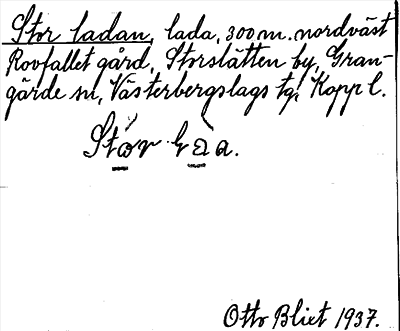 Stor ladan, lada, 300 m. nordväst
Rovfallet gård, Storslätten by, Gran-
gärde sn, Västerbergslags tg, Kopp l.
Stor
Otto Bliet 1937.